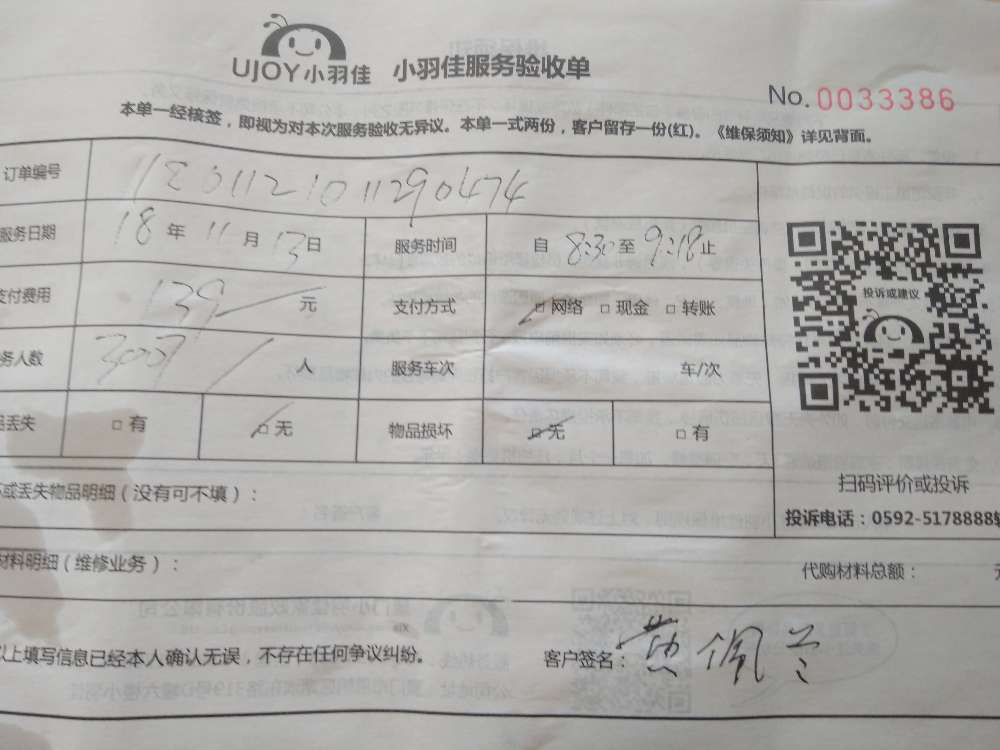 UJOY小羽佳 小羽佳服务验收单
No. 0033386
本单一经核签，即视为对本次服务验收无异议。本单一式两份，客户留存一份(红)。《维保须知》详见背面。
订单编号
服务日期 18 年 11 月 13 日 服务时间 自 8:30 至 9:18 止
支付费用 139 元 支付方式 □ 网络 □ 现金 □ 转账
务人数 人 服务车次 车/次
丢失 □ 有 □ 无 物品损坏 □ 无 □ 有
投诉或建议
扫码评价或投诉
投诉电话：0592-5178888转
或丢失物品明细（没有可不填）：
材料明细（维修业务）： 代购材料总额： 元
以上填写信息已经本人确认无误，不存在任何争议纠纷。 客户签名：黄佩兰